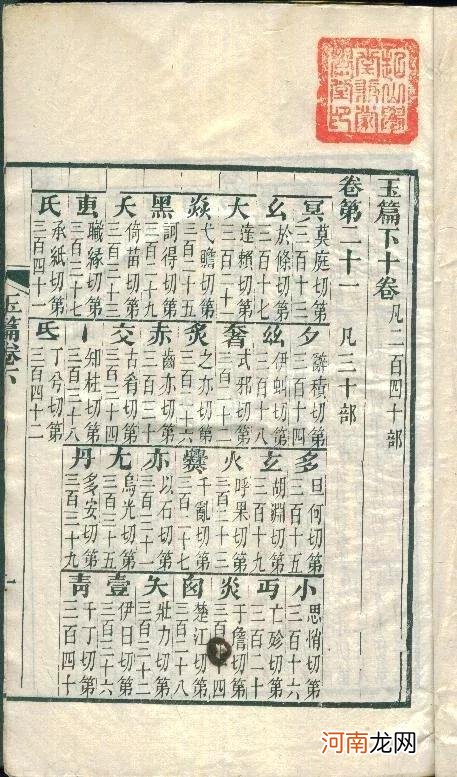 玉篇下十卷 凡二百四十部
卷第二十一 凡三十部
冥 莫庭切第三百十三 夕 辭積切第三百十四 多 旦何切第三百十五 小 思悄切第三百十六
幺 於條切第三百十七 𢆶 伊虯切第三百十八 玄 胡淵切第三百十九 丏 亡殄切第三百二十
大 達賴切第三百二十一 奢 式邪切第三百二十二 火 呼果切第三百二十三 炎 于詹切第三百二十四
焱 弋贍切第三百二十五 炙 之亦切第三百二十六 爨 千亂切第三百二十七 囪 楚江切第三百二十八
黑 訶得切第三百二十九 赤 齒亦切第三百三十 亦 以石切第三百三十一 夨 壯力切第三百三十二
夭 倚苗切第三百三十三 交 古肴切第三百三十四 尢 烏光切第三百三十五 壹 伊日切第三百三十六
叀 職緣切第三百三十七 丨 知杜切第三百三十八 丹 多安切第三百三十九 靑 千丁切第三百四十
氏 承紙切第三百四十一 氐 丁兮切第三百四十二
玉篇卷六
一
河南龙网